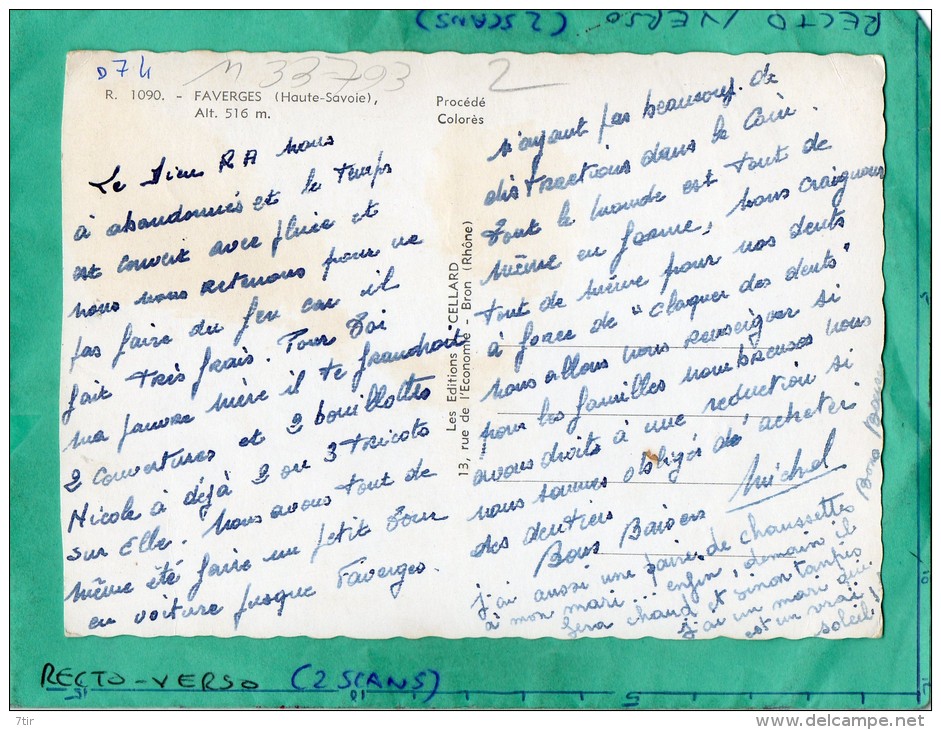 RECTO / VERSO (2 SCANS)
D74
N 33-793
2
R. 1090. - FAVERGES (Haute-Savoie),
Alt. 516 m.
Procédé
Colorès
Le Dieu RA nous
à abandonnés et le temps
est couvert avec pluie et
nous nous retenons pour ne
pas faire du feu car il
fait très frais. Pour toi
ma pauvre mère il te faudrait
2 couvertures et 2 bouillottes
Nicole à déjà 2 ou 3 tricots
sur elle. Nous avons tout de
même été faire un petit tour
en voiture jusque Faverges.
Les Editions CELLARD
13, rue de l'Economie - Bron (Rhône)
n'ayant pas beaucoup de
distractions dans le coin.
Tout le monde est tout de
même en forme, nous craignons
tout de même pour nos dents
à force de "claquer des dents"
nous allons nous renseigner si
pour les familles nombreuses nous
avons droits à une reduction si
nous sommes obligés d'acheter
des dentiers
Bons Baisers Michel
j'ai aussi une paire de chaussettes
à mon mari... enfin, demain il
sera chaud et sinon tanpis
j'ai un mari qui
est un vrai
soleil!
Bons Baisers
RECTO-VERSO (2 SCANS)
7tir
www.delcampe.net